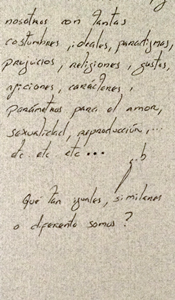 nosotros con tantas
costumbres, ideales, paradigmas,
prejuicios, religiones, gustos,
aficiones, carácteres,
parámetros para el amor,
sexualidad, reproducción,...
etc etc etc...
Qué tan iguales, similares
o diferente somos?